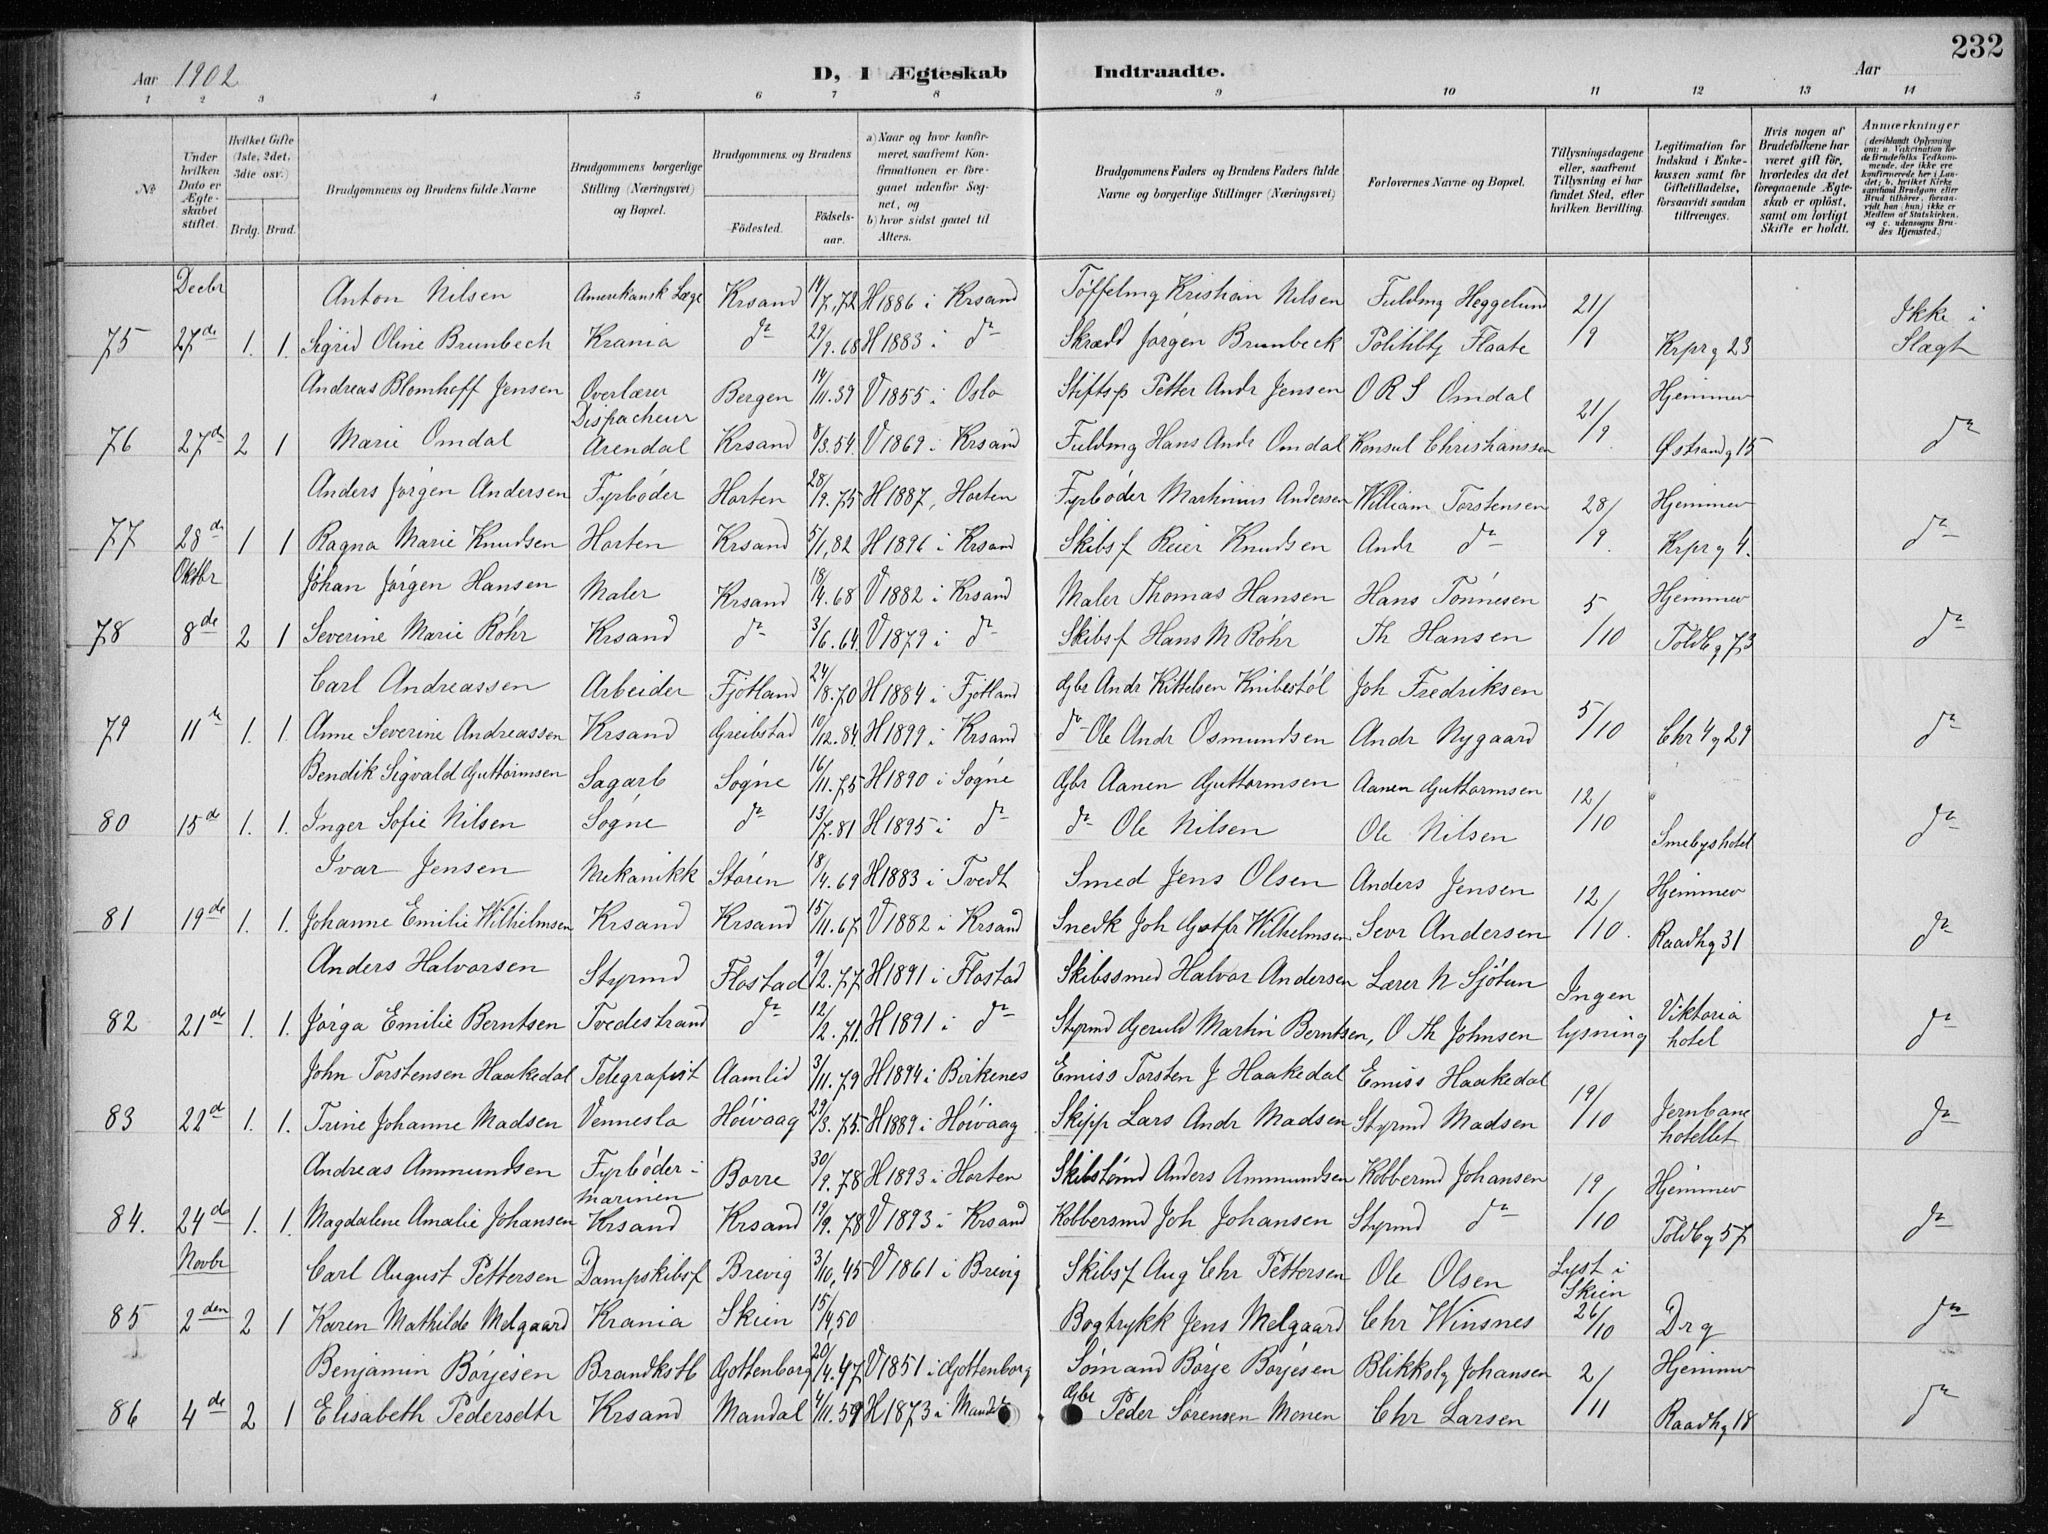 232
Aar 1902
D, I Ægteskab Indtraadte.
Aar
1 2 3 4 5 6 7 8 9 10 11 12 13 14
No
Under hvilken Dato er Ægteskabet stiftet.
Hvilket Gifte (1ste, 2det, 3die osv.)
Brdg. Brud.
Brudgommens og Brudens fulde Navne
Brudgommens borgerlige Stilling (Næringsvei) og Bopæl.
Brudgommens og Brudens
Födested. Födselsaar.
a) Naar og hvor konfirmeret, saafremt Konfirmationen er foregaaet udenför Sognet, og
b) hvor sidst gaaet til Alters.
Brudgommens Faders og Brudens Faders fulde Navne og borgerlige Stillinger (Næringsvei)
Forlovernes Navne og Bopæl.
Tillysningsdagene eller, saafremt Tillysning ei har fundet Sted, efter hvilken Bevilling.
Legitimation for Indskud i Enkekassen samt for Giftetilladelse, forsaavidt saadan tiltrænges.
Hvis nogen af Brudefolkene har været gift för, hvorledes da det foregaaende Ægteskab er oplöst, samt om lovligt Skifte er holdt.
Anmærkninger
(deriblandt Oplysning om: a. Vaccination for de Brudefolks Vedkommende, der ikke ere konfirmerede her i Landet; b. hvilket Kirkesamfund Brudgom eller Brud tilhører, forsaavidt han (hun) ikke er Medlem af Statskirken, og c. udensogns Brudes Hjemsted.)
Decbr
Anton Nilsen Amerikansk Læge Krsand 14/7,72 H1886 i Krsand Tøffelmg Kristian Nilsen Fuldmg Heggelund 21/9 Ikke i Slægt
75 27de 1. 1. Sigrid Oline Brunbech Krania do 29/9.68 H1883 i do Skrædd Jørgen Brunbeck Politibtj Flaate Krprg 23
Andreas Blomhoff Jensen Overlærer Bergen 14/11.39 V1855 i Oslo Stiftsp Petter Andr Jensen O R S Omdal 21/9 Hjemmev
Dispacheur
76 27de 2 1 Marie Omdal Arendal Krsand 8/3.54. V1869 i Krsand Fuldmg Hans Andr Omdal Konsul Christianssen Østrandg 15 do
Anders Jørgen Andersen Fyrbøder Horten 28/9.75 H1887, Horten Fyrbøder Martinius Andersen William Torstensen 28/9. Hjemmev
77 28de 1 1 Ragna Marie Knudsen Horten Krsand 5/1,82 H1896 i Krsand Skibsf Reier Knudsen Andr do Krprg 4. do
Oktbr
Johan Jørgen Hansen Maler Krsand 18/4.68 V1882 i Krsand Maler Thomas Hansen Hans Tönnesen 5/10 Hjemmev
78 8de 2 1 Severine Marie Röhr Krsand do 3/6.64. V1879 i do Skibsf Hans M Röhr Th Hansen Toldbg 73 do
Carl Andreassen Arbeider Fjotland 24/8.70 H1884 i Fjotland Gbr Andr Kittelsen Knibestøl Joh Fredriksen 5/10
79 11te 1. 1. Anne Severine Andreassen Krsand Greibstad 10/12.84. H1899 i Krsand do Ole Andr Osmundsen Andr Nygaard Chr 4 g 29 do
Bendik Sigvald Guttormsen Sagarb Søgne 16/11.75 H1890 i Søgne Gbr Aanen Guttormsen Aanen Guttormsen 12/10
80 15de 1. 1. Inger Sofie Nilsen Søgne do 13/7.81 H1895 i do do Ole Nilsen Ole Nilsen Smebyshotel do
Ivar Jensen Mekanikk Støren 18/4.69 H1883 i Tvedt Smed Jens Olsen Anders Jensen 12/10. Hjemmev
81 19de 1. 1. Johanne Emilie Wilhelmsen Krsand Krsand 15/11.67 V1882 i Krsand Snedk Joh Gotfr Wilhelmsen Sevr Andersen Raadhg 31 do
Anders Halvorsen Styrmd Flostad 9/2.77 H1891 i Flostad Skibssmed Halvor Andersen Lærer N Sjötun Ingen lysning Viktoria hotel
82 21de 1. 1. Jørga Emilie Berntsen Tvedestrand do 12/2.71. H1891 i do Styrmd Gjeruld Martin Berntsen, O Th Johnsen do
John Torstensen Haakedal Telegrafist Aamlid 3/11.79 H1894 i Birkenes Emiss Torsten J Haakedal Emiss Haakedal 19/10
83 22de 1. 1. Trine Johanne Madsen Vennesla Høivaag 29/3.75. H1889 i Høivaag Skipp Lars Andr Madsen Styrmd Madsen Jernbane hotellet do
Andreas Ammundsen Fyrbøder i marinen Borre 30/9.78 H1893 i Horten Skibstømd Anders Ammundsen Kobbermd Johansen 19/10 Hjemmev
84. 24de 1. 1. Magdalene Amalie Johansen Krsand Krsand 19/9.78 V1893 i Krsand Kobbersmd Joh Johansen Styrmd do Toldbg 57 do
Novbr
Carl August Pettersen Dampskibsf Brevig 3/10,45 V1861 i Brevig Skibsf Aug Chr Pettersen Ole Olsen Lyst i Skien 26/10
85 2den 2 1 Karen Mathilde Melgaard Krania Skien 15/4,50 Bogtrykk Jens Melgaard Chr Winsnes Drg do
Benjamin Børjesen Brandkstb Gottenborg 20/4.47 V1851 i Gottenborg Sømand Börje Borjesen Blikkslg Johansen 2/11 Hjemmev
86 4de 2 1 Elisabeth Pedersdtr Krsand Mandal 4/11.59 H1873 i Mandal Gbr Peder Sørensen Monen Chr Larsen Raadhg 18 do